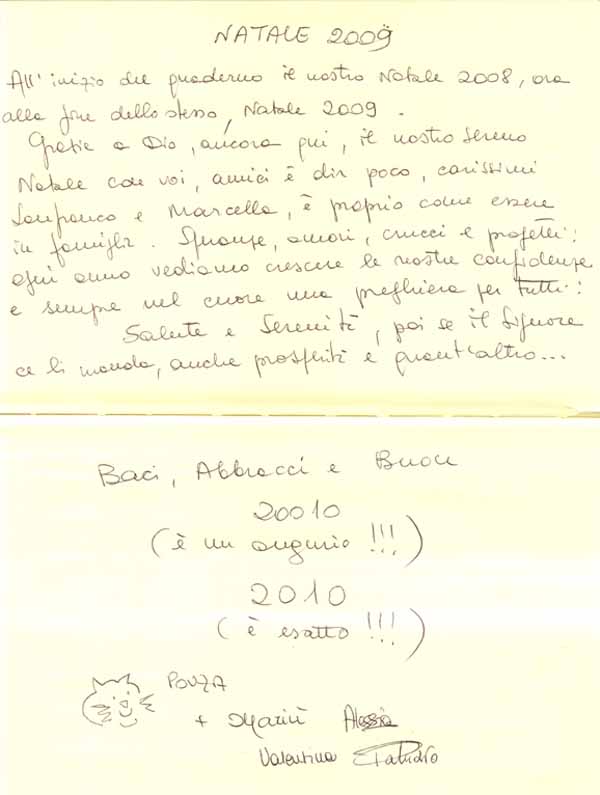 NATALE 2009
All'inizio del quaderno il nostro Natale 2008, ora
alla fine dello stesso, Natale 2009.
Grazie a Dio, ancora qui, il nostro sereno
Natale con voi, amici è dir poco, carissimi
Lanfranco e Marcella, è proprio come essere
in famiglia. Speranze, amori, crucci e progetti:
ogni anno vediamo crescere le nostre confidenze
e sempre nel cuore una preghiera per tutti:
Salute e Serenità, poi se il Signore
ce li manda, anche prosperità e quant'altro...
Baci, Abbracci e Buon
20010
(è un augurio!!!)
2010
(è esatto!!!)
+ Mariù Alessia
Valentina